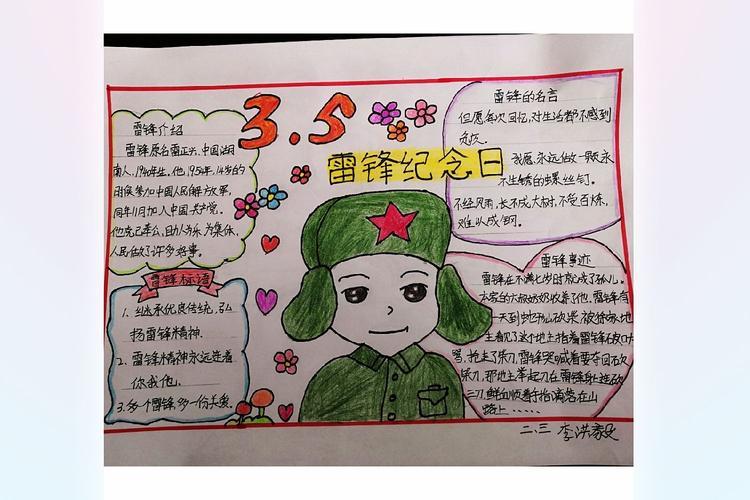 3.5
雷锋纪念日
雷锋介绍
雷锋原名雷正兴,中国湖
南人,1940年生。他1954年,14岁的
时候参加中国人民解放军,
同年11月加入中国共产党。
他克己奉公,助人为乐,为集体,
人民做了许多好事。
雷锋标语
1、继承优良传统,弘
扬雷锋精神.
2、雷锋精神永远连着
你我他.
3、多个雷锋,多一份关爱。
雷锋的名言
但愿每次回忆,对生活都不感到
负疚。
我愿永远做一颗永
不生锈的螺丝钉。
不经风雨,长不成大树,不受百炼,
难以成钢。
雷锋事迹
雷锋在不满七岁时就成了孤儿。
本家的六叔奶奶收养了他。雷锋有
一天到蛇形山砍柴被徐家地
主看见了这个地主指着雷锋破口大
骂,抢走了柴刀,雷锋哭喊着要夺回砍
柴刀,那地主举起刀在雷锋身上连砍
三刀,鲜血顺着手指滴落在山
路上……
二、三 李洪